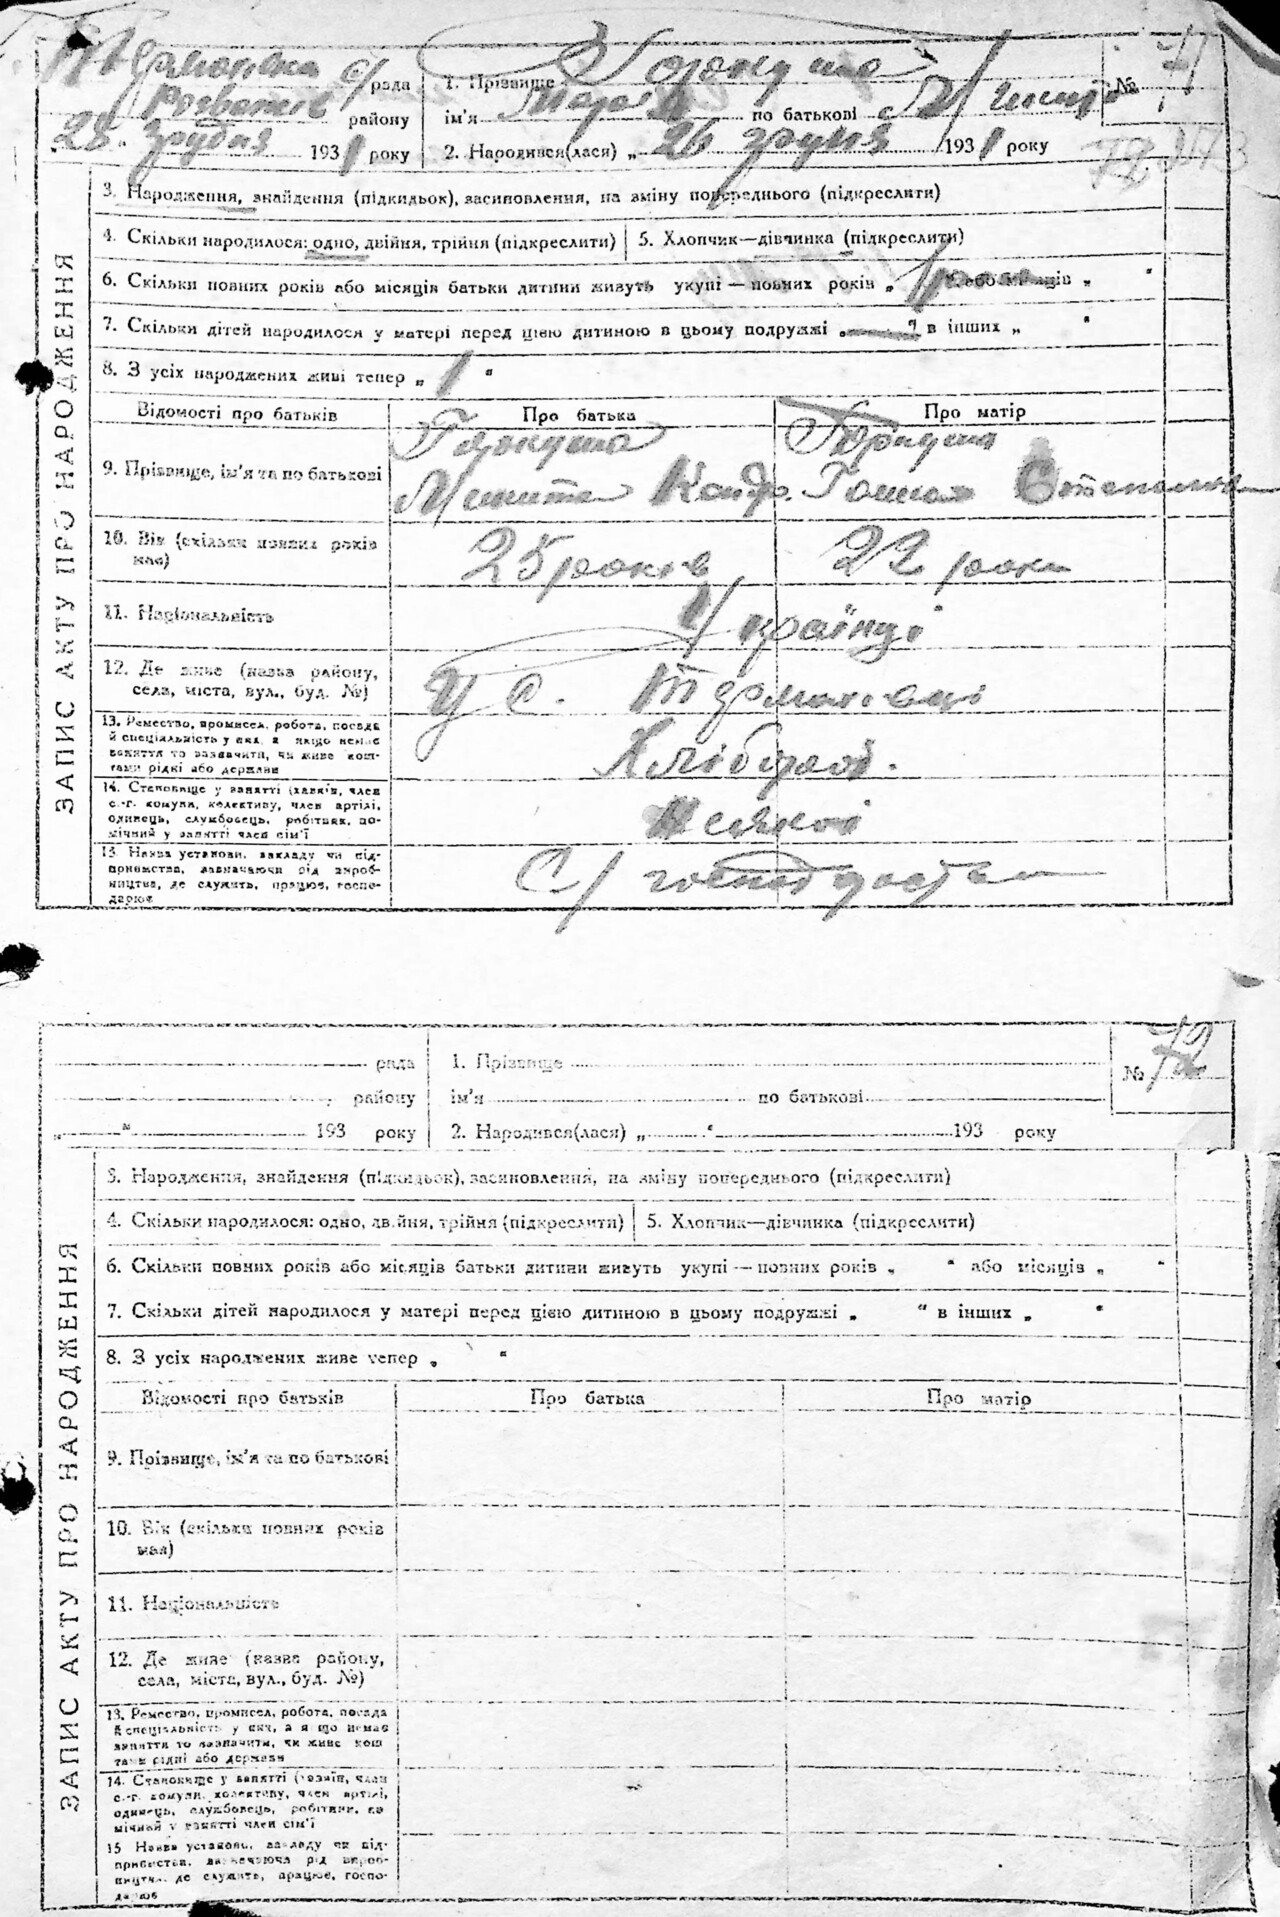 рада
району
28 Грудня 1931 року
1. Прізвище
ім'я Марія по батькові
2. Народився(лася) „ 26 грудня 1931 року
№ 71
72
ЗАПИС АКТУ ПРО НАРОДЖЕННЯ
3. Народження, знайдення (підкидьок), засиновлення, на зміну попереднього (підкреслити)
4. Скільки народилося: одно, двійня, трійня (підкреслити)
5. Хлопчик—дівчинка (підкреслити)
6. Скільки повних років або місяців батьки дитини живуть укупі — повних років „ або місяців „ “
7. Скільки дітей народилося у матері перед цією дитиною в цьому подружжі „ — “ в інших „ “
8. З усіх народжених живі тепер „ 1 “
Відомості про батьків
Про батька
Про матір
9. Прізвище, ім'я та по батькові
Микита
10. Вік (скільки повних років має)
25 років
22 роки
11. Національність
Українці
12. Де живе (назва району,
села, міста, вул., буд. №)
У с.
13. Ремество, промисел, робота, посада
й спеціяльність у них, а якщо немає
заняття то зазначити, чи живе кош-
тами рідні або держави
Хлібороб.
14. Становище у занятті (хазяїн, член
с.-г. комуни, колективу, член артілі,
одинець, службовець, робітник, по-
мічний у занятті член сім'ї
15 Назва установи, закладу чи під-
приємства, зазначаючи рід вироб-
ництва, де служить, працює, госпо-
дарює
С/господарстві
рада
району
„ “ 193 року
1. Прізвище
ім'я по батькові
2. Народився(лася) „ “ 193 року
№ 72
ЗАПИС АКТУ ПРО НАРОДЖЕННЯ
3. Народження, знайдення (підкидьок), засиновлення, на зміну попереднього (підкреслити)
4. Скільки народилося: одно, двійня, трійня (підкреслити)
5. Хлопчик—дівчинка (підкреслити)
6. Скільки повних років або місяців батьки дитини живуть укупі — повних років „ “ або місяців „ “
7. Скільки дітей народилося у матері перед цією дитиною в цьому подружжі „ “ в інших „ “
8. З усіх народжених живе тепер „ “
Відомості про батьків
Про батька
Про матір
9. Прізвище, ім'я та по батькові
10. Вік (скільки повних років
має)
11. Національність
12. Де живе (назва району,
села, міста, вул., буд. №)
13. Ремество, промисел, робота, посада
й спеціяльність у них, а якщо немає
заняття то зазначити, чи живе кош
тами рідні або держави
14. Становище у занятті (хазяїн, член
с.-г. комуни, колективу, член артілі,
одинець, службовець, робітник, по
мічний у занятті член сім'ї
15 Назва установи, закладу чи під-
приємства, зазначаючи рід вироб-
ництва, де служить, працює, госпо-
дарює